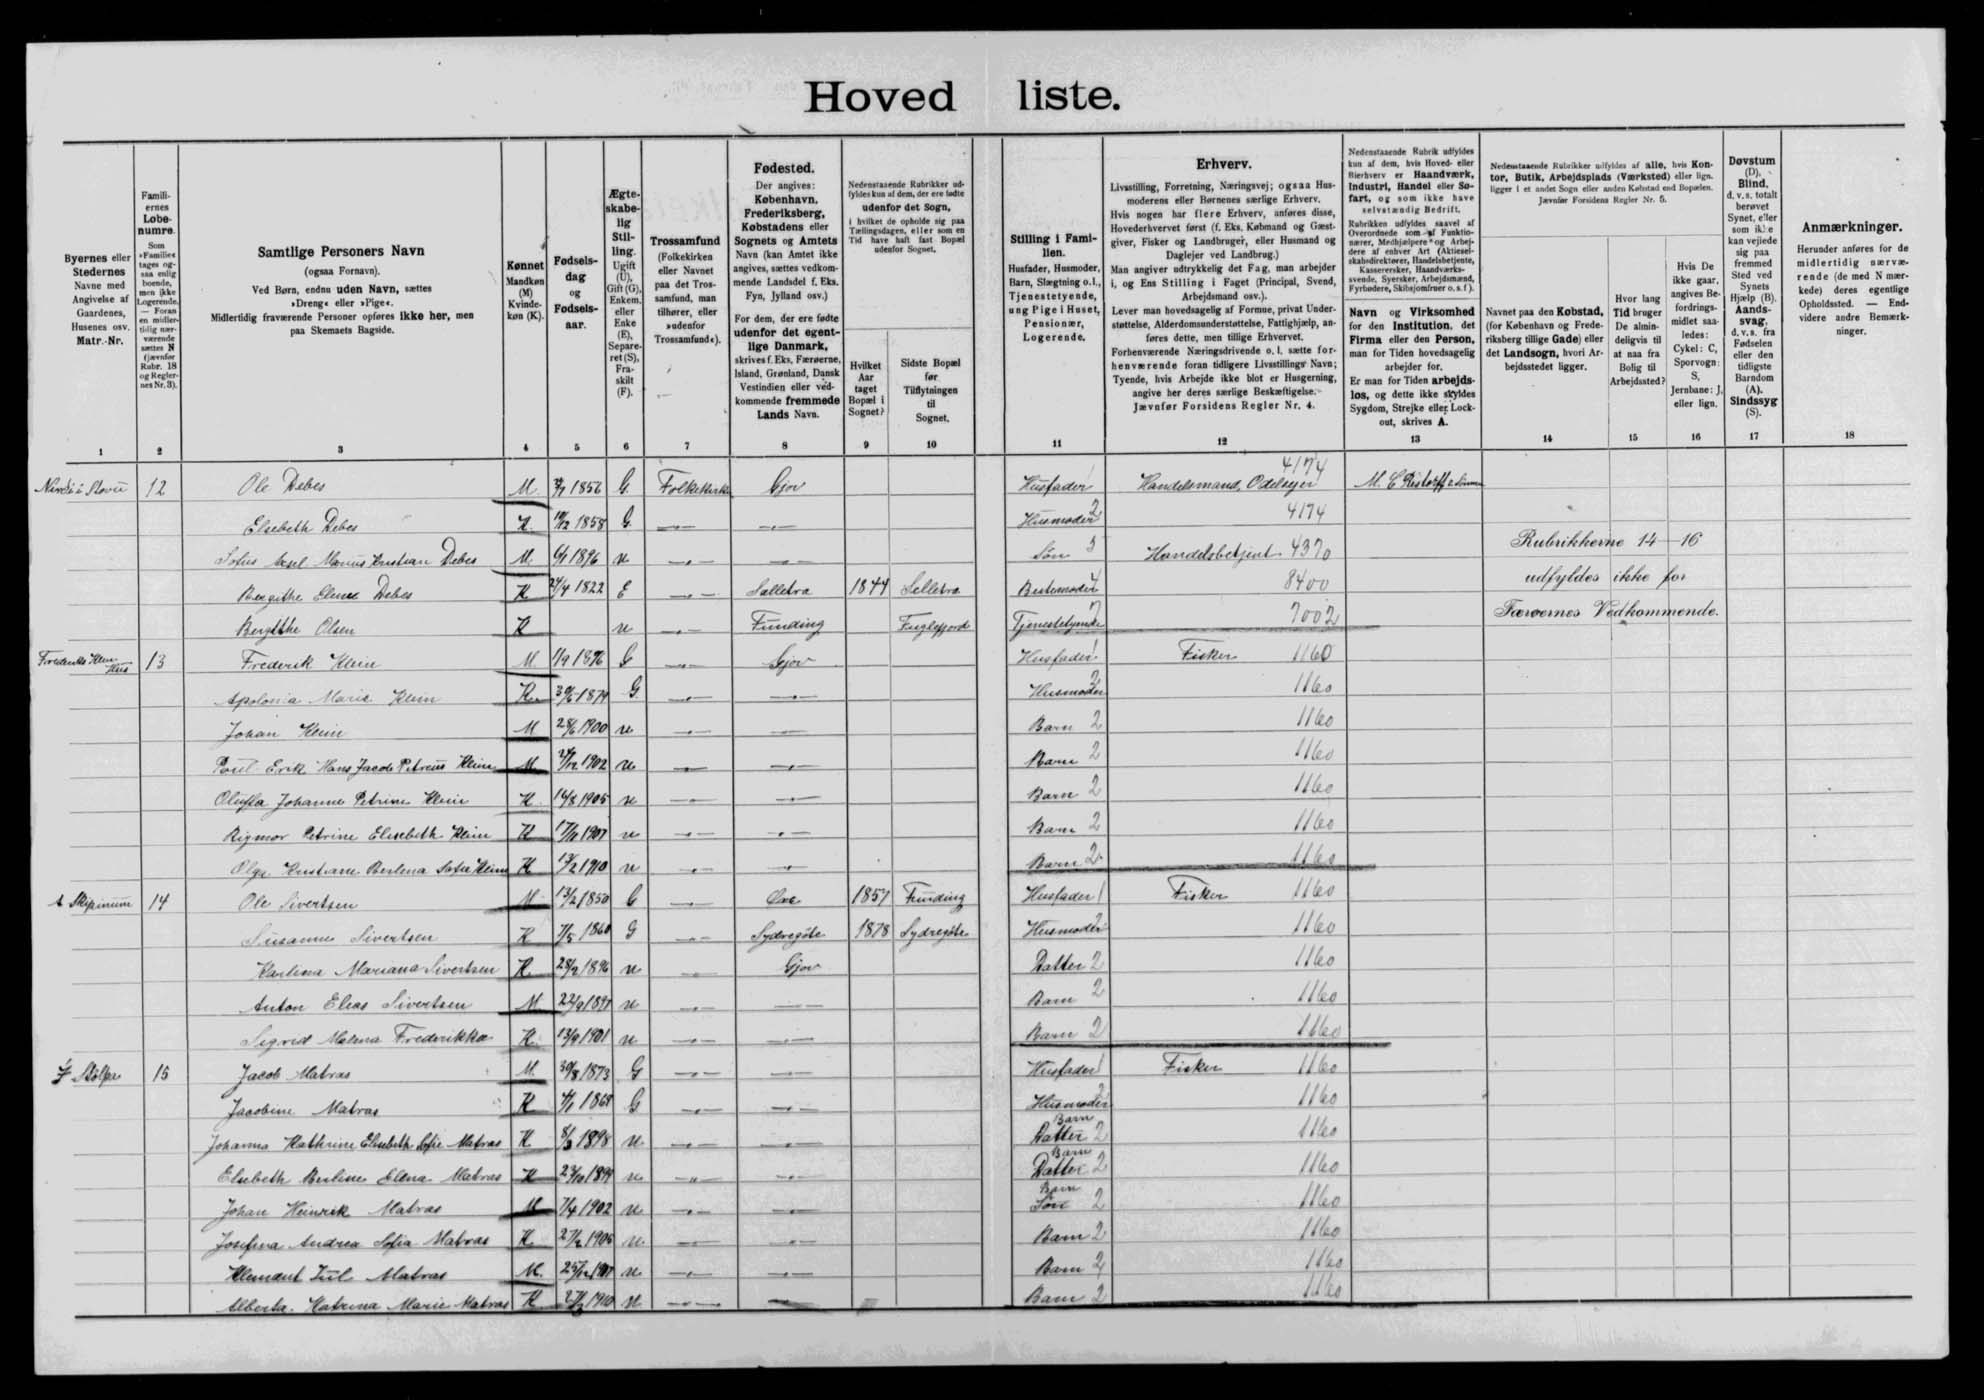 Hoved liste.
Byernes eller Stedernes Navne med Angivelse af Gaardenes, Husenes osv. Matr.-Nr.
Familiernes Løbenumre.
Som »Familie« tages ogsaa enlig boende, men ikke Logerende. — Foran en midlertidig nærværende sættes N (jævnfør Rubr. 18 og Reglernes Nr. 3).
Samtlige Personers Navn
(ogsaa Fornavn).
Ved Børn, endnu uden Navn, sættes
»Dreng« eller »Pige«.
Midlertidig fraværende Personer opføres ikke her, men
paa Skemaets Bagside.
Kønnet Mandkøn (M) Kvindekøn (K).
Fødselsdag og Fødselsaar.
Ægteskabelig Stilling.
Ugift (U), Gift (G), Enkem. eller Enke (E), Separeret (S), Fraskilt (F).
Trossamfund
(Folkekirken eller Navnet paa det Trossamfund, man tilhører, eller »udenfor Trossamfund«).
Fødested.
Der angives: København, Frederiksberg, Købstadens eller Sognets og Amtets Navn (kan Amtet ikke angives, sættes vedkommende Landsdel f. Eks. Fyn, Jylland osv.)
For dem, der ere fødte udenfor det egentlige Danmark, skrives f. Eks. Færøerne, Island, Grønland, Dansk Vestindien eller vedkommende fremmede Lands Navn.
Nedenstaaende Rubrikker udfyldes kun af dem, der ere fødte udenfor det Sogn, i hvilket de opholde sig paa Tællingsdagen, eller som en Tid have haft fast Bopæl udenfor Sognet.
Hvilket Aar taget Bopæl i Sognet?
Sidste Bopæl før Tilflytningen til Sognet.
Stilling i Familien.
Husfader, Husmoder, Barn, Slægtning o.l., Tjenestetyende, ung Pige i Huset, Pensionær, Logerende.
Erhverv.
Livsstilling, Forretning, Næringsvej; ogsaa Husmoderens eller Børnenes særlige Erhverv.
Hvis nogen har flere Erhverv, anføres disse, Hovederhvervet først (f. Eks. Købmand og Gæstgiver, Fisker og Landbruger, eller Husmand og Daglejer ved Landbrug.)
Man angiver udtrykkelig det Fag, man arbejder i, og Ens Stilling i Faget (Principal, Svend, Arbejdsmand osv.).
Lever man hovedsagelig af Formue, privat Understøttelse, Alderdomsunderstøttelse, Fattighjælp, anføres dette, men tillige Erhvervet.
Forhenværende Næringsdrivende o. l. sætte forhenværende foran tidligere Livsstillings Navn; Tyende, hvis Arbejde ikke blot er Husgerning, angive her deres særlige Beskæftigelse.
Jævnfør Forsidens Regler Nr. 4.
Nedenstaaende Rubrik udfyldes kun af dem, hvis Hoved- eller Bierhverv er Haandværk, Industri, Handel eller Søfart, og som ikke have selvstændig Bedrift.
Rubrikken udfyldes saavel af Overordnede som af Funktionærer, Medhjælpere og Arbejdere af enhver Art (Aktieselskabsdirektører, Handelsbetjente, Kasserersker, Haandværkssvende, Syersker, Arbejdsmænd, Fyrbødere, Skibsjomfruer o. s. f.).
Navn og Virksomhed for den Institution, det Firma eller den Person, man for Tiden hovedsagelig arbejder for.
Er man for Tiden arbejdsløs, og dette ikke skyldes Sygdom, Strejke eller Lockout, skrives A.
Nedenstaaende Rubrikker udfyldes af alle, hvis Kontor, Butik, Arbejdsplads (Værksted) eller lign. ligger i et andet Sogn eller anden Købstad end Bopælen.
Jævnfør Forsidens Regler Nr. 5.
Navnet paa den Købstad, (for København og Frederiksberg tillige Gade) eller det Landsogn, hvori Arbejdsstedet ligger.
Hvor lang Tid bruger De almindeligvis til at naa fra Bolig til Arbejdssted?
Hvis De ikke gaar, angives Befordringsmidlet saaledes: Cykel: C, Sporvogn: S, Jernbane: J, eller lign.
Døvstum (D), Blind, d. v. s. totalt berøvet Synet, eller som ikke kan vejlede sig paa fremmed Sted ved Synets Hjælp (B). Aandssvag, d. v. s. fra Fødselen eller den tidligste Barndom (A). Sindssyg (S).
Anmærkninger.
Herunder anføres for de midlertidig nærværende (de med N mærkede) deres egentlige Opholdssted. — Endvidere andre Bemærkninger.
1 2 3 4 5 6 7 8 9 10 11 12 13 14 15 16 17 18
12 Ole Debes M. 1856 G. Folkekirke Gjov Husfader 1 Handelsmand, Odelsejer 4174
Elsebeth Debes K. 10/12 1858 G. —„— —„— Husmoder 2 4174
Sofus Axel Marius Kristian Debes M. 6/1 1896 u —„— —„— Søn 3 Handelsbetjent 4370 Rubrikkerne 14–16
Bergithe Elene Debes K 24/4 1822 E —„— Selletra 1844 Selletra Bestemoder 4 8400 udfyldes ikke for
Bergithe Olsen K u —„— Funding Fuglefjord Tjenestetyende 7 7002 Færøernes Vedkommende.
Frederiks Klein Hus 13 Frederik Klein M. 1/9 1876 G —„— Gjov Husfader 1 Fisker 1160
Apolonia Marie Klein K. 30/5 1879 G. —„— —„— Husmoder 2 1160
Johan Klein M 28/6 1900 u —„— —„— Barn 2 1160
Poul Erik Hans Jacob Petreus Klein M 1902 u —„— —„— Barn 2 1160
Olufla Johanne Petrine Klein K. 14/8 1905 u —„— —„— Barn 2 1160
Rigmor Petrine Elisebeth Klein K 17/11 1907 u —„— —„— Barn 2 1160
Olga Kristiane Berlena Sofie Klein K 13/2 1910 u —„— —„— Barn 2 1160
14 Ole Sivertsen M 13/2 1850 G —„— 1857 Funding Husfader 1 Fisker 1160
Susanne Sivertsen K 7/5 1860 G —„— Sydregöte 1878 Sydregöte Husmoder 2 1160
Karlina Mariana Sivertsen K. 28/2 1896 u —„— Gjov Datter 2 1160
Anton Elias Sivertsen M 22/9 1897 u —„— —„— Barn 2 1160
Sigrid Malena Frederikka K. 13/9 1901 u —„— —„— Barn 2 1160
15 Jacob Matras M. 30/8 1873 G —„— —„— Husfader 1 Fisker 1160
Jacobine Matras K 1868 G —„— —„— Husmoder 2 1160
Johanna Kathrine Elisebeth Sofie Matras K 8/3 1898 u —„— —„— Barn Datter 2 1160
Elsebeth Berline Elena Matras K 23/10 1899 u —„— —„— Barn Datter 2 1160
Johan Heinrik Matras M 7/4 1902 u —„— —„— Barn Søn 2 1160
Josefina Andrea Sofia Matras K. 27/2 1905 u —„— —„— Barn 2 1160
Klemant Jul Matras M. 25/12 1907 u —„— —„— Barn 2 1160
Alberta Katrina Marie Matras K 1910 u —„— —„— Barn 2 1160